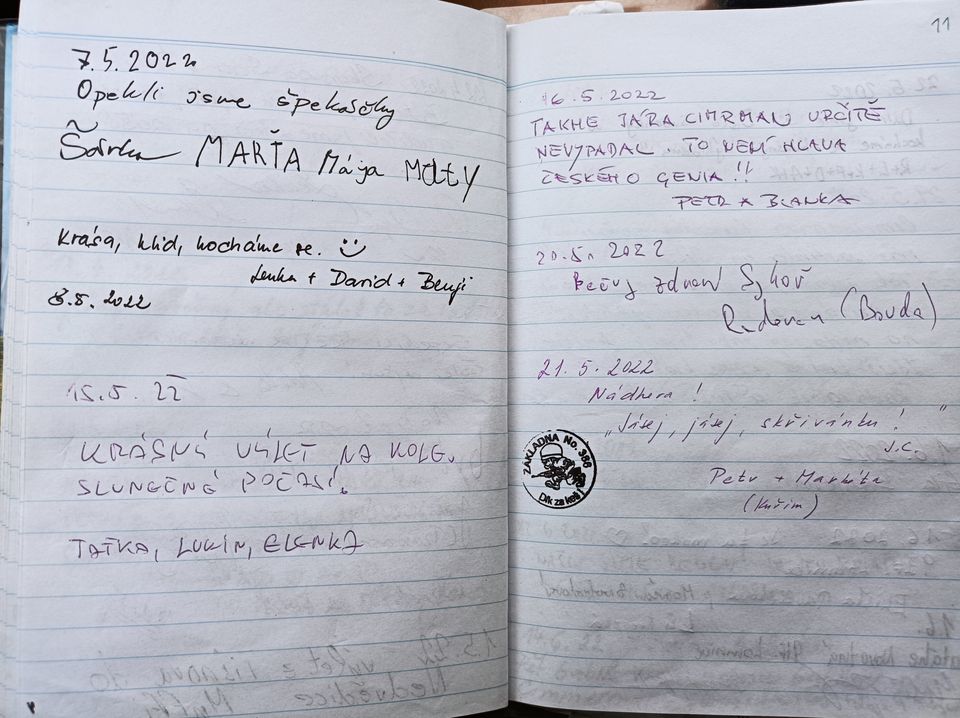 7.5.2022
Opekli jsme špekáčky
Šárka MARŤA Mája Matty
Krása, klid, kocháme se.
Lenka + David + Benji
8.5.2022
15.5.22
KRÁSNÝ VÝLET NA KOLE.
SLUNEČNÉ POČASÍ.
TAŤKA, LUKIN, ELENKA
11
16.5.2022
TAKHE JÁRA CIMRMAN URČITĚ
NEVYPADAL. TO NENÍ HLAVA
ČESKÉHO GENIA!!
PETR A BLANKA
20.5. 2022
zdraví
Radovan (Bouda)
21.5.2022
Nádhera!
„Jásej, jásej, skřivánku!"
J.C.
Petr + Markéta
(Kuřim)
ZÁKLADNA No. 386
Dík za keš!